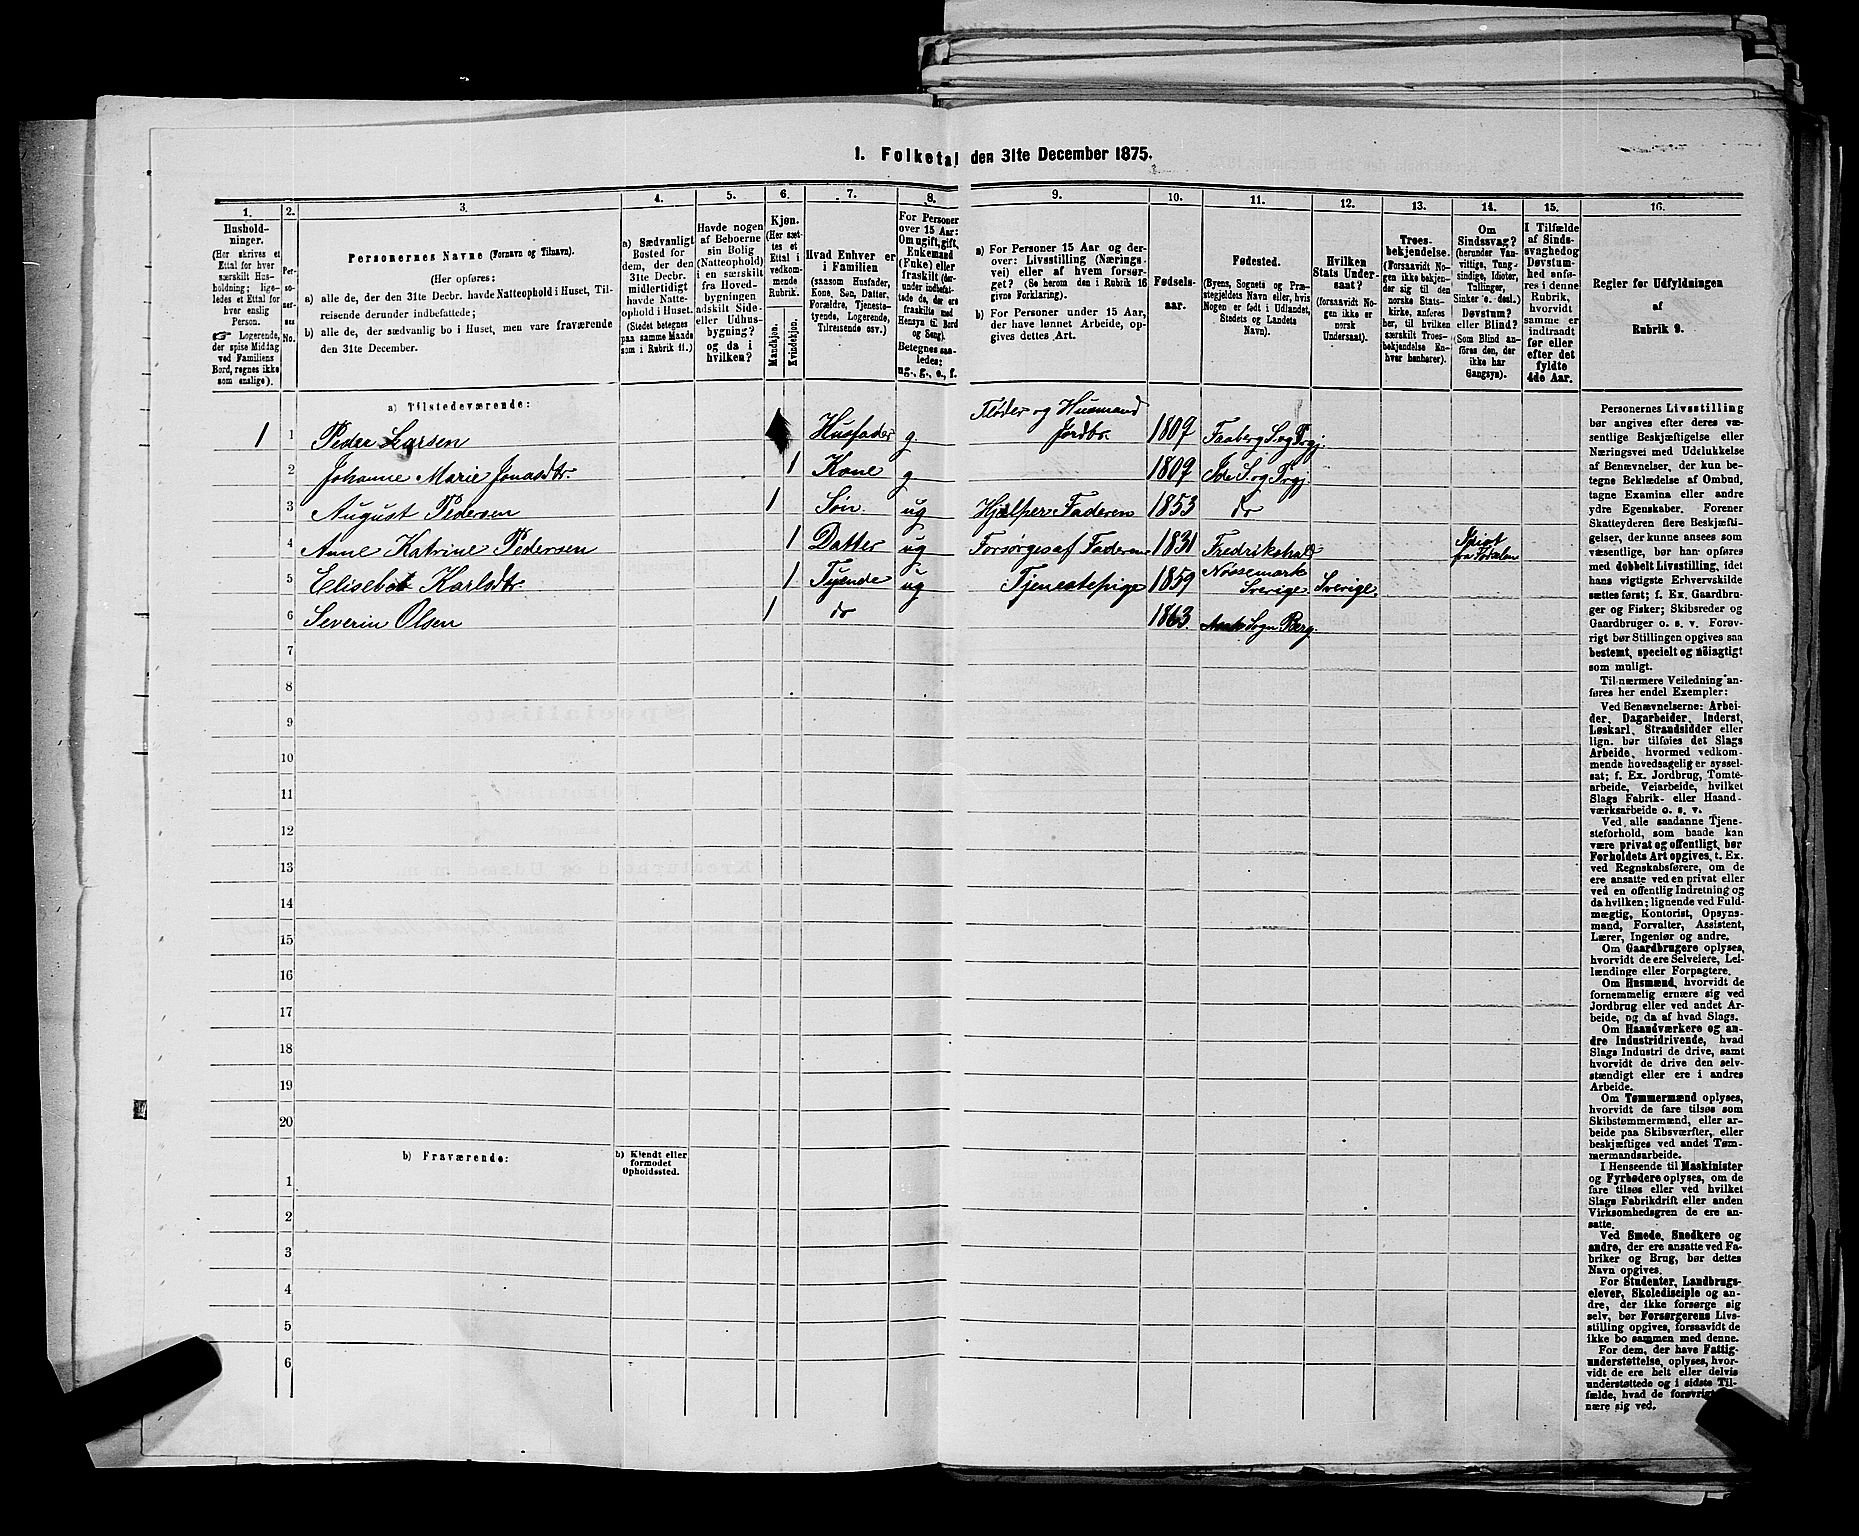 1. Folketal den 31te December 1875.
1. 2. 3. 4. 5. 6. 7. 8. 9. 10. 11. 12. 13. 14. 15. 16.
Hushold-
ninger.
(Her skrives et
Ettal for hver
særskilt Hus-
holdning; lige-
ledes et Ettal for
hver enslig
Person.
Logerende,
der spise Middag
ved Familiens
Bord, regnes ikke
som enslige).
Per-
so-
ner-
nes
No.
Personernes Navne (Fornavn og Tilnavn).
(Her opføres:
a) alle de, der den 31te Decbr. havde Natteophold i Huset, Til-
reisende derunder indbefattede;
b) alle de, der sædvanlig bo i Huset, men vare fraværende
den 31te December.
a) Sædvanligt
Bosted for
dem, der den
31te Decbr.
midlertidigt
havde Natte-
ophold i Huset.
(Stedet betegnes
paa samme Maade
som i Rubrik 11.)
Havde nogen
af Beboerne
sin Bolig
(Natteophold)
i en særskilt
fra Hoved-
bygningen
adskilt Side-
eller Udhus-
bygning?
og da i
hvilken?
Kjøn.
(Her sæt-
tes et
Ettal i
vedkom-
mende
Rubrik.
Mandkjøn.
Kvindekjøn.
Hvad Enhver er
i Familien
(saasom Husfader,
Kone, Søn, Datter,
Forældre, Tjeneste-
tyende, Logerende,
Tilreisende osv.)
For Personer
over 15 Aar:
Om ugift, gift,
Enkemand
(Enke) eller
fraskilt (der-
under indbefat-
tede de, der ere
fraskilte med
Hensyn til Bord
og Seng).
Betegnes saa-
ledes:
ug., g., e., f.
a) For Personer 15 Aar og der-
over: Livsstilling (Nærings-
vei) eller af hvem forsør-
get? (Se herom den i Rubrik 16
givne Forklaring).
b) For Personer under 15 Aar,
der have lønnet Arbeide, op-
gives dettes Art.
Fødsels-
aar.
Fødested.
(Byens, Sognets og Præ-
stegjeldets Navn eller, hvis
Nogen er født i Udlandet,
Stedets og Landets
Navn).
Hvilken
Stats Under-
saat?
(forsaavidt No-
gen ikke er
norsk
Undersaat).
Troes-
bekjendelse.
(Forsaavidt No-
gen ikke bekjen-
der sig til den
norske Stats-
kirke, anføres
her, til hvilken
særskilt Troes-
bekjendelse En-
hver henhører).
Om
Sindssvag?
(herunder Van-
vittige, Tung-
sindige, Idioter,
Tullinger,
Sinker o. desl.)
Døvstum?
eller Blind?
(Som Blind an-
føres den, der
ikke har
Gangsyn).
I Tilfælde
af Sinds-
svaghed og
Døvstum-
hed anfø-
res i denne
Rubrik,
hvorvidt
samme er
indtraadt
før eller
efter det
fyldte
4de Aar.
Regler for Udfyldningen
af
Rubrik 9.
a) Tilstedeværende:
1 1 Peder Larsen Husfader g. Fløder og Husmand Jordbr. 1807 Faaberg S. og Prgj.
2 Johanne Marie Jonasdtr. 1 Kone g 1807 Ide S. og Prgj.
3 August Pedersen 1 Søn ug Hjælper Faderen 1853 do
4 Anne Katrine Pedersen 1 Datter ug Forsørges af Faderen 1831 Fredrikshald Idiot fra Fødselen
5 Elisebet Karlsdtr. 1 Tyende ug Tjenestepige 1859 Nössemark Sverige Sverige.
6 Severin Olsen 1 do 1863. Asak Sogn Berg.
7
8
9
10
11
12
13
14
15
16
17
18
19
20
b) Fraværende:
b) Kjendt eller
formodet
Opholdssted.
1
2
3
4
5
6
Personernes Livsstilling
bør angives efter deres væ-
sentlige Beskjæftigelse eller
Næringsvei med Udelukkelse
af Benævnelser, der kun be-
tegne Beklædelse af Ombud,
tagne Examina eller andre
ydre Egenskaber. Forener
Skatteyderen flere Beskjæfti-
gelser, der kunne ansees som
væsentlige, bør han opføres
med dobbelt Livsstilling, idet
hans vigtigste Erhvervskilde
sættes først; f. Ex. Gaardbru-
ger og Fisker; Skibsreder og
Gaardbruger o. s. v. Forøv-
rigt bør Stillingen opgives saa
bestemt, specielt og nøiagtigt
som muligt.
Til nærmere Veiledning an-
føres her endel Exempler:
Ved Benævnelserne: Arbei-
der, Dagarbeider, Inderst,
Løskarl, Strandsidder eller
lign. bør tilføies det Slags
Arbeide, hvormed vedkom-
mende hovedsagelig er syssel-
sat; f. Ex. Jordbrug, Tomte-
arbeide, Veiarbeide, hvilket
Slags Fabrik- eller Haand-
værksarbeide o. s. v.
Ved alle saadanne Tjene-
steforhold, som baade kan
være privat og offentligt, bør
Forholdets Art opgives, t. Ex.
ved Regnskabsførere, om de
ere ansatte ved en privat eller
ved en offentlig Indretning og
da hvilken; lignende ved Fuld-
mægtig, Kontorist, Opsyns-
mand, Forvalter, Assistent,
Lærer, Ingeniør og andre.
Om Gaardbrugere oplyses,
hvorvidt de ere Selveiere, Lei-
lændinge eller Forpagtere.
Om Husmænd, hvorvidt de
fornemmelig ernære sig ved
Jordbrug eller ved andet Ar-
beide, og da af hvad Slags.
Om Haandværkere og an-
dre Industridrivende, hvad
Slags Industri de drive, samt
hvorvidt de drive den selv-
stændigt eller ere i andres
Arbeide.
Om Tømmermænd oplyses,
hvorvidt de fare tilsøs som
Skibstømmermænd, eller ar-
beide paa Skibsværfter, eller
beskjæftiges ved andet Tøm-
mermandsarbeide.
I Henseende til Maskinister
og Fyrbødere oplyses, om de
fare tilsøs eller ved hvilket
Slags Fabrikdrift eller anden
Virksomhedsgren de ere an-
satte.
Ved Smede, Snedkere og
andre, der ere ansatte ved Fa-
briker og Brug, bør dettes
Navn opgives.
For Studenter, Landbrugs-
elever, Skoledisciple og an-
dre, der ikke forsørge sig
selv, bør Forsørgerens Livs-
stilling opgives, forsaavidt de
ikke bo sammen med denne.
For dem, der have Fattig-
understøttelse, oplyses, hvor-
vidt de ere helt eller delvis
understøttede og i sidste Til-
fælde, hvad de forøvrigt
nære sig ved.